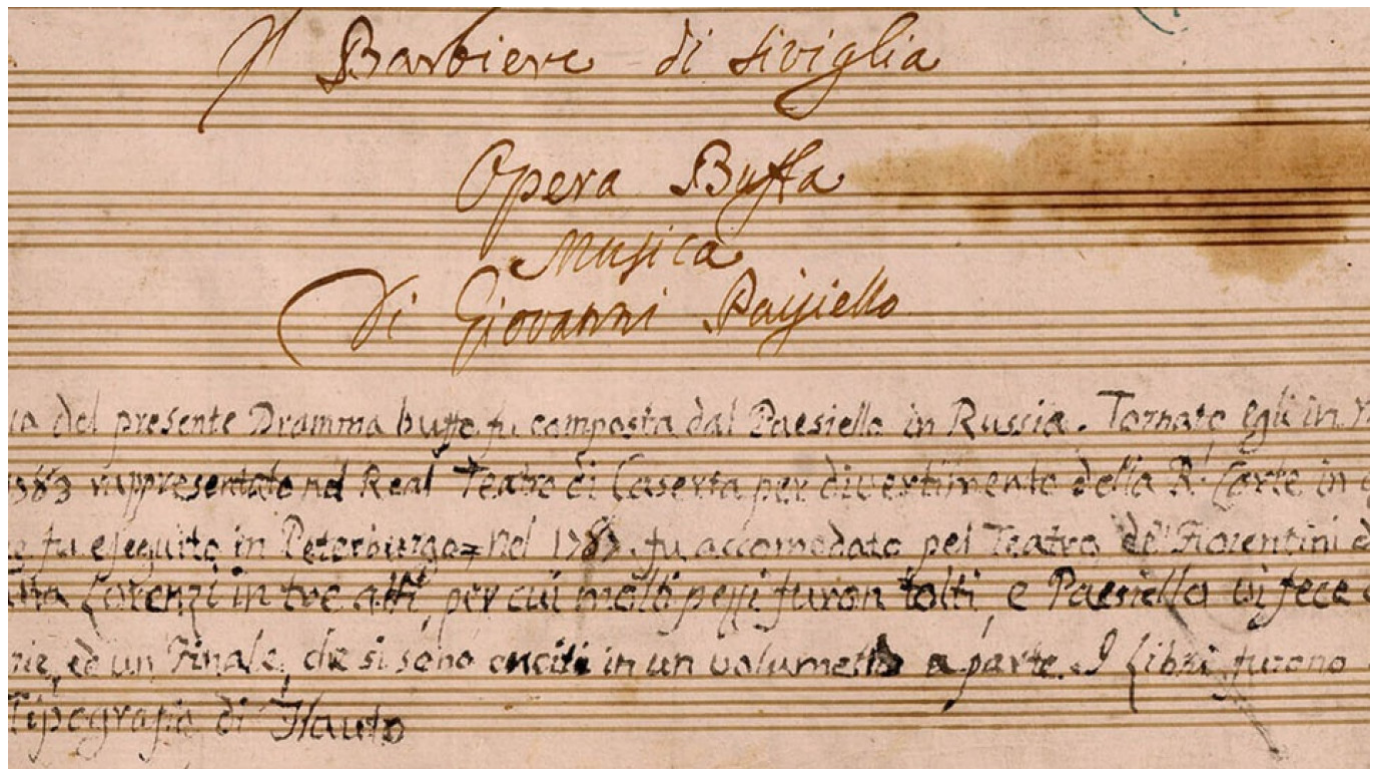 Il Barbiere di Siviglia
Opera Buffa
Musica
Di Giovanni Paisiello
del presente Dramma buffo fu composta dal Paesiello in Russia. Tornato egli in
rappresentato nel Real Teatro di Caserta per divertimento della R. Corte in
fu eseguito in Peterburgo = Nel 1787. fu accomodato pel Teatro de' Fiorentini
Lorenzi in tre atti, per cui molti pezzi furon tolti, e Paesiello vi fece
ed un Finale, che si sono in un volumetto a parte. I libri furono
Tipografia di Flauto